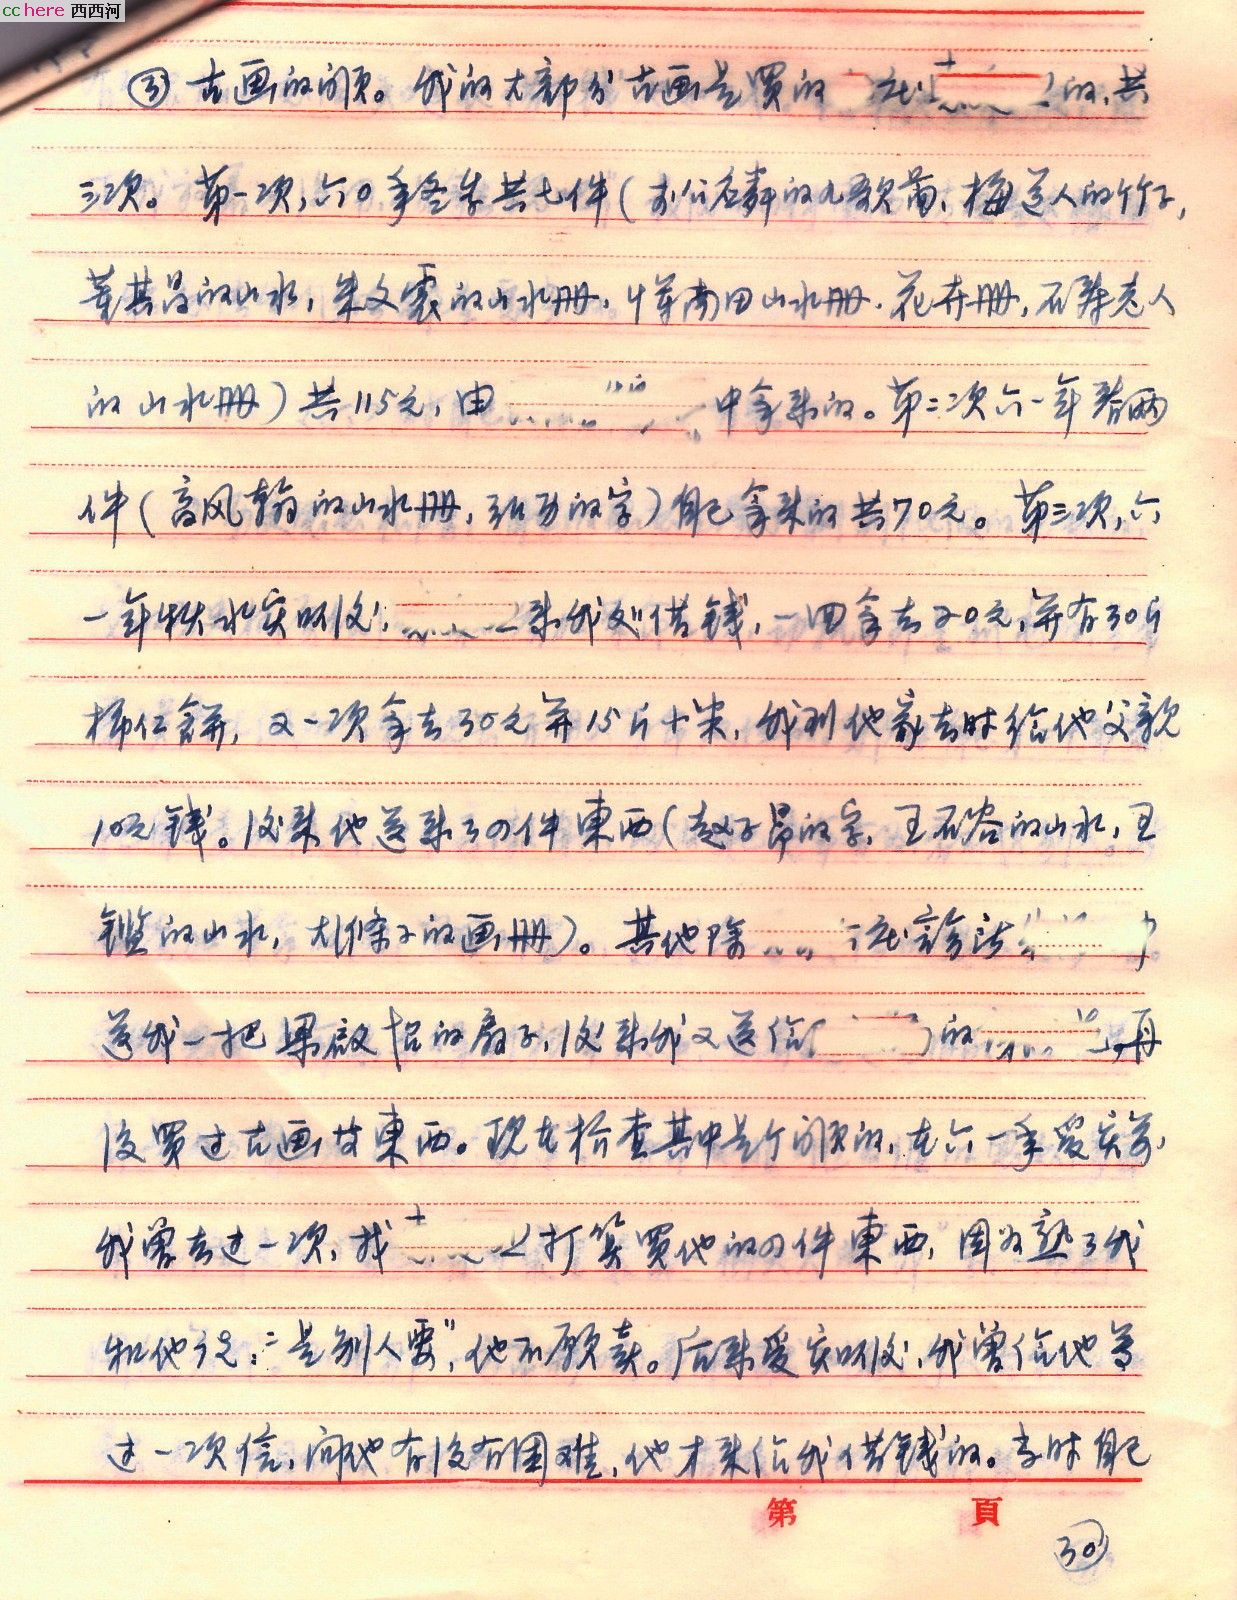 cchere 西西河
③ 古画的问题。我的大部分古画是買的 在 的,共
三次。第一次,六〇年冬季共七件( 的九歌啚、梅道人的竹子,
董其昌的山水,朱文震的山水册,恽南田山水册、花卉册,石 老人
的山水册)共115元,由 中拿来的。第二次六一年春两
件(高凤翰的山水册, 的字)自己拿来的共70元。第三次,六
一年 水灾以后, 来我处借钱,一回拿去20元,并有30斤
仁餅,又一次拿去30元并15斤 米,我到他家去时给他父亲
10元钱。后来他送来了四件東西(赵子昂的字,王石谷的山水,王
鑑的山水,大條子的画册)。其他除 在 
送我一把梁啟超的扇子,后来我又送给 的 ,再
没買过古画艹東西。现在检查其中是个问题的,在六一年受灾前,
我曾去过一次,找 打算買他的四件東西,因为熟了我
和他说:“是别人要”,他不愿卖。后来受灾以后,我曾给他写
过一次信,问他有没有困难,他才来给我借钱的。当时自己
第 頁
30